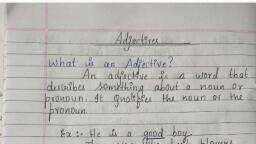 Adjectives
What is an Adjective?
An adjective is a word that
describes something about a noun or
pronoun. It qualifies the noun or the
pronoun.
Ex :- He is a good boy.